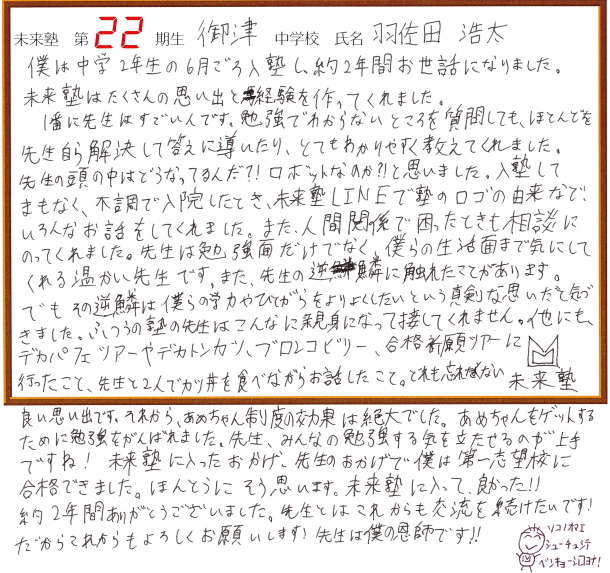 未来塾 第 22 期生 御津 中学校 氏名 羽佐田 浩太
僕は中学2年生の6月ごろ入塾し、約2年間お世話になりました。
未来塾はたくさんの思い出と経験を作ってくれました。
1番に先生はすごいんです。勉強でわからないところを質問しても、ほとんどを
先生自ら解決して答えに導いたり、とてもわかりやすく教えてくれました。
先生の頭の中はどうなってるんだ?!ロボットなのか?!と思いました。入塾して
まもなく、不調で入院したとき、未来塾LINEで塾のロゴの由来など、
いろんなお話をしてくれました。また、人間関係で困ったときも相談に
のってくれました。先生は勉強面だけでなく、僕らの生活面まで気にして
くれる温かい先生です。また、先生の逆鱗に触れたことがあります。
でもその逆鱗は僕らの学力やひとがらをよりよくしたいという真剣な思いだと気づ
きました。ふつうの塾の先生はこんなに親身になって接してくれません。他にも、
デカパフェツアーやデカトンカツ、ブロンコビリー、合格祈願ツアーに
行ったこと、先生と2人でカツ丼を食べながらお話したこと。どれも忘れがない
未来塾
良い思い出です。それから、あめちゃん制度の効果は絶大でした。あめちゃんをゲットする
ために勉強をがんばれました。先生、みんなの勉強する気を立たせるのが上手
ですね!未来塾に入ったおかげ、先生のおかげで僕は第一志望校に
合格できました。ほんとうにそう思います。未来塾に入って、良かった!!
約2年間ありがとうございました。先生とはこれからも交流を続けたいです!
だからこれからもよろしくお願いします!先生は僕の恩師です!!
ソコノオマエ
シューチュシテ
ベンキョーシロヨナ!